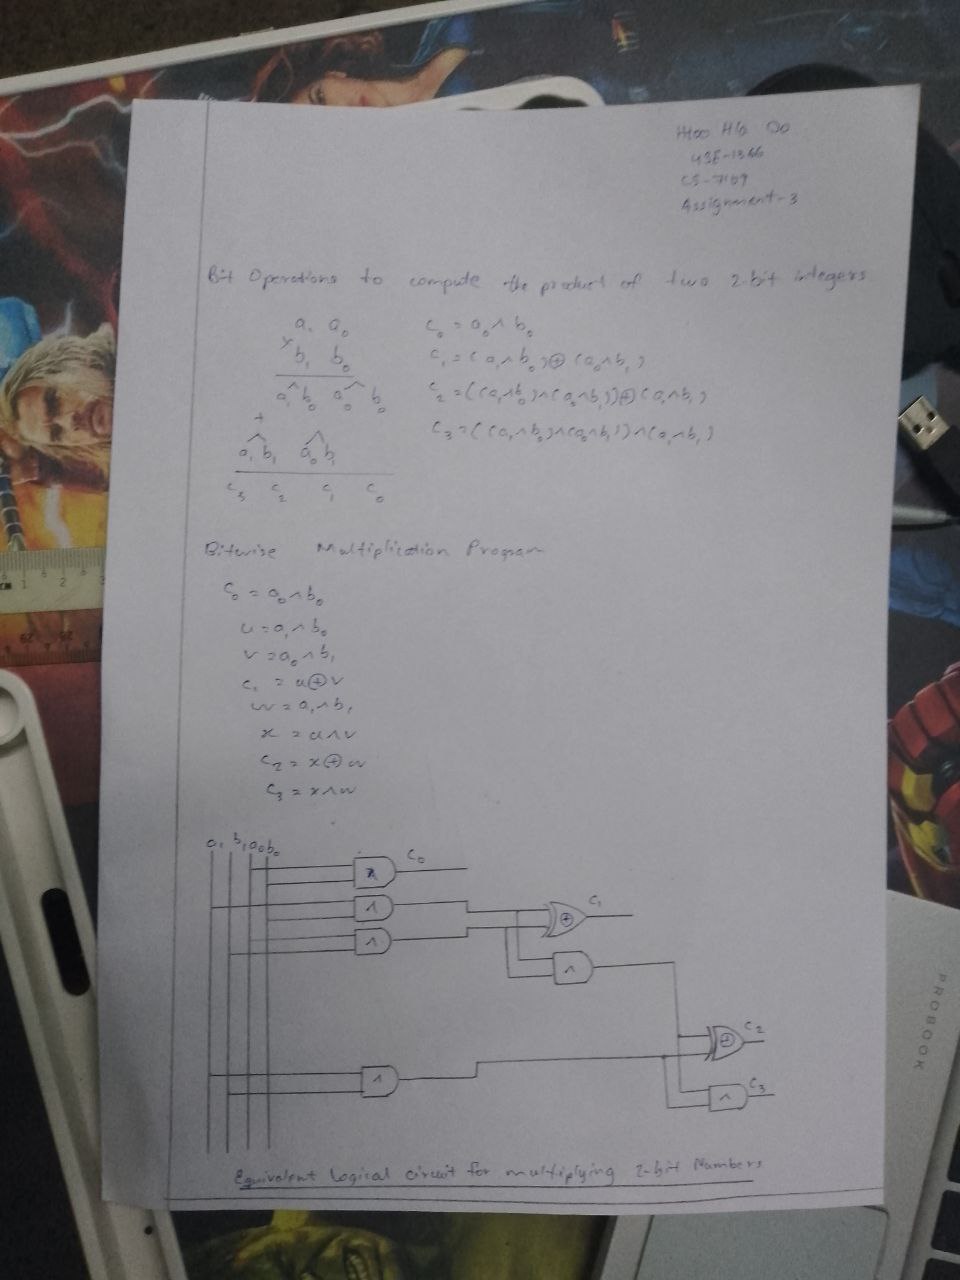 Htoo
CS-7109
Assignment-3
Bit Operations to compute the product of two 2-bit integers
a₁ a₀
× b₁ b₀
a₁^b₀ a₀^b₀
+
a₁^b₁ a₀^b₁
c₃ c₂ c₁ c₀
c₀ = a₀∧b₀
c₁ = (a₁∧b₀)⊕(a₀∧b₁)
c₂ = ((a₁∧b₀)∧(a₀∧b₁))⊕(a₁∧b₁)
c₃ = ((a₁∧b₀)∧(a₀∧b₁))∧(a₁∧b₁)
Bitwise Multiplication Program
c₀ = a₀∧b₀
u = a₁∧b₀
v = a₀∧b₁
c₁ = u⊕v
w = a₁∧b₁
x = u∧v
c₂ = x⊕w
c₃ = x∧w
a₁ b₁ a₀ b₀
∧ c₀
∧
⊕ c₁
∧
∧
⊕ c₂
∧
∧ c₃
Equivalent Logical circuit for multiplying 2-bit Numbers
PROBOOK